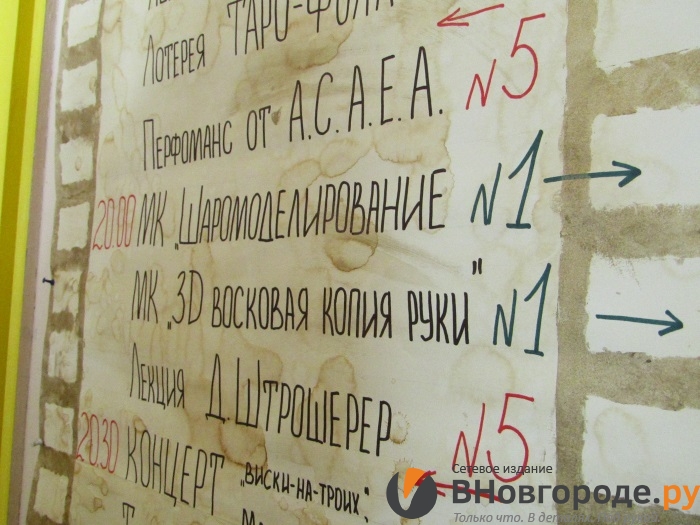 Лотерея ТАРО-ФОЛК
Перфоманс от A.C.A.E.A. N5
20.00 МК „Шаромоделирование N1
МК „3D восковая копия руки" N1
Лекция Д.Штрошерер N5
20.30 КОНЦЕРТ „ВИСКИ-НА-ТРОИХ",
Сетевое издание
ВНовгороде.ру
Только что. В